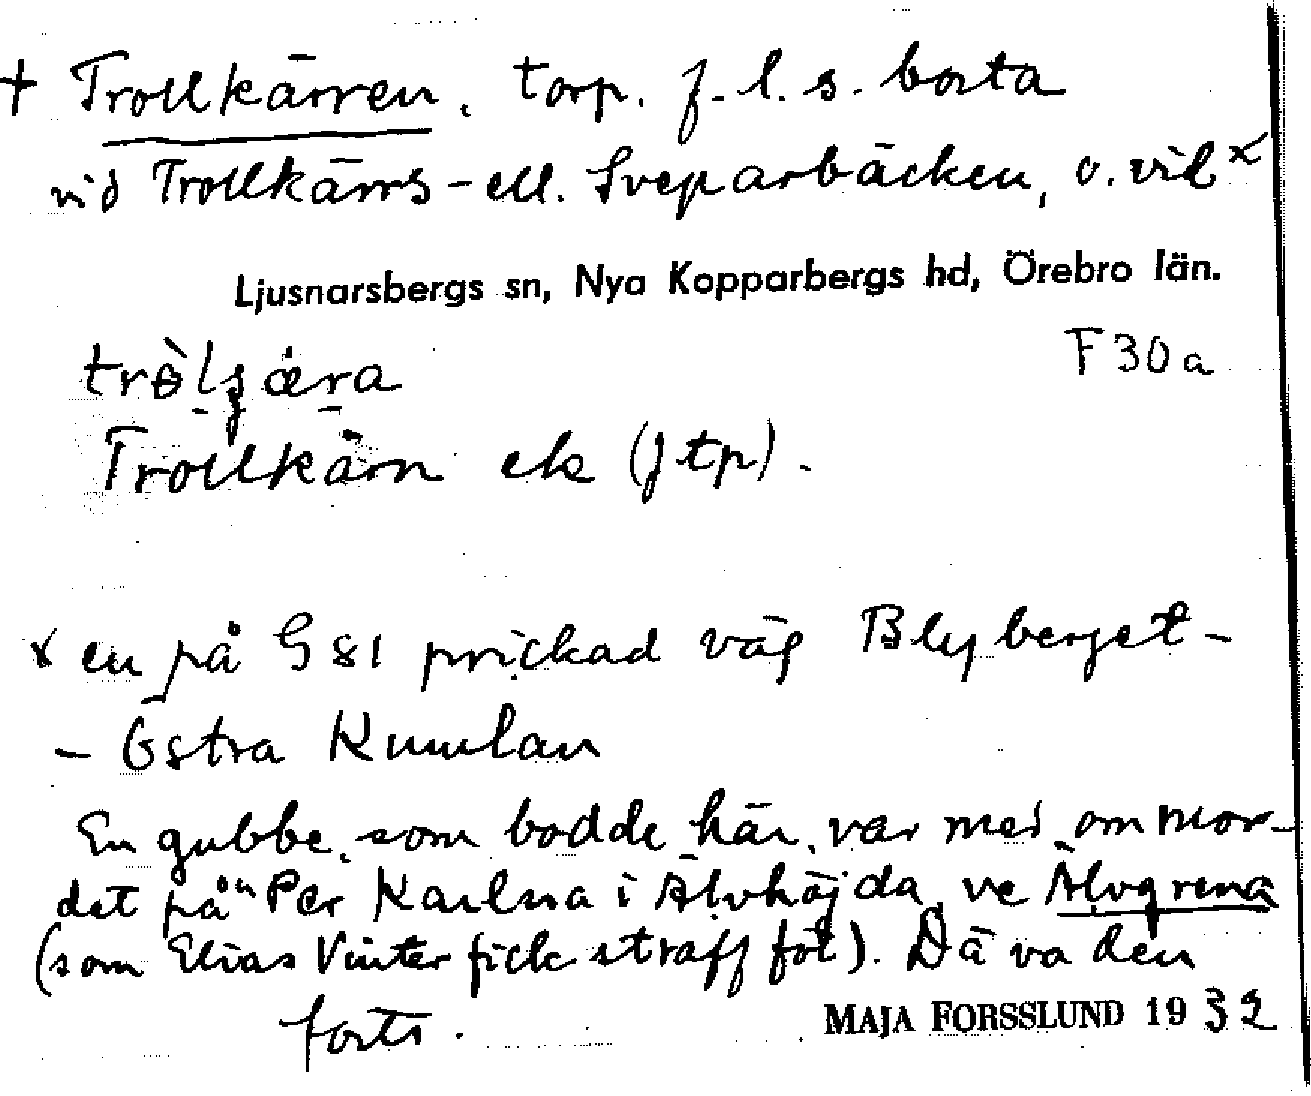 + Trollkärren, torp. f. l. s. borta
vid Trollkärrs- ell. Sveparbäcken, o. vid x
Ljusnarsbergs sn, Nya Kopparbergs hd, Örebro län.
F 30 a
Trollkärn ek (jtp).
x en på G 81 prickad väg Blyberget -
- Östra Kumlan
En gubbe, som bodde här, var med om mor-
det på "Per Karlsa i Älvhöjda ve Älvgrena
(som Elias Vinter fick straff för). Dä va den
forts.
MAJA FORSSLUND 1932